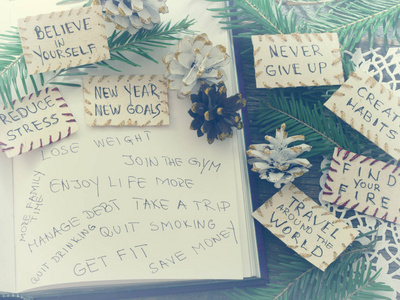 BELIEVE
IN
YOURSELF
NEW YEAR
NEW GOALS
REDUCE
STRESS
NEVER
GIVE UP
CREATE
HABITS
FIND
YOUR
FIRE
TRAVEL
AROUND THE
WORLD
LOSE WEIGHT
JOIN THE GYM
ENJOY LIFE MORE
MORE FAMILY
TIME
MANAGE DEBT
TAKE A TRIP
QUIT DRINKING
QUIT SMOKING
GET FIT
SAVE MONEY